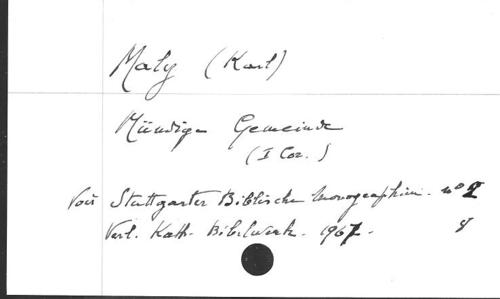 Maly (Karl)
Mündige Gemeinde
(I Cor.)
Voir Stuttgarter Biblische Monographien. n° 2
Verl. Kath. Bibelwerk. 1967.